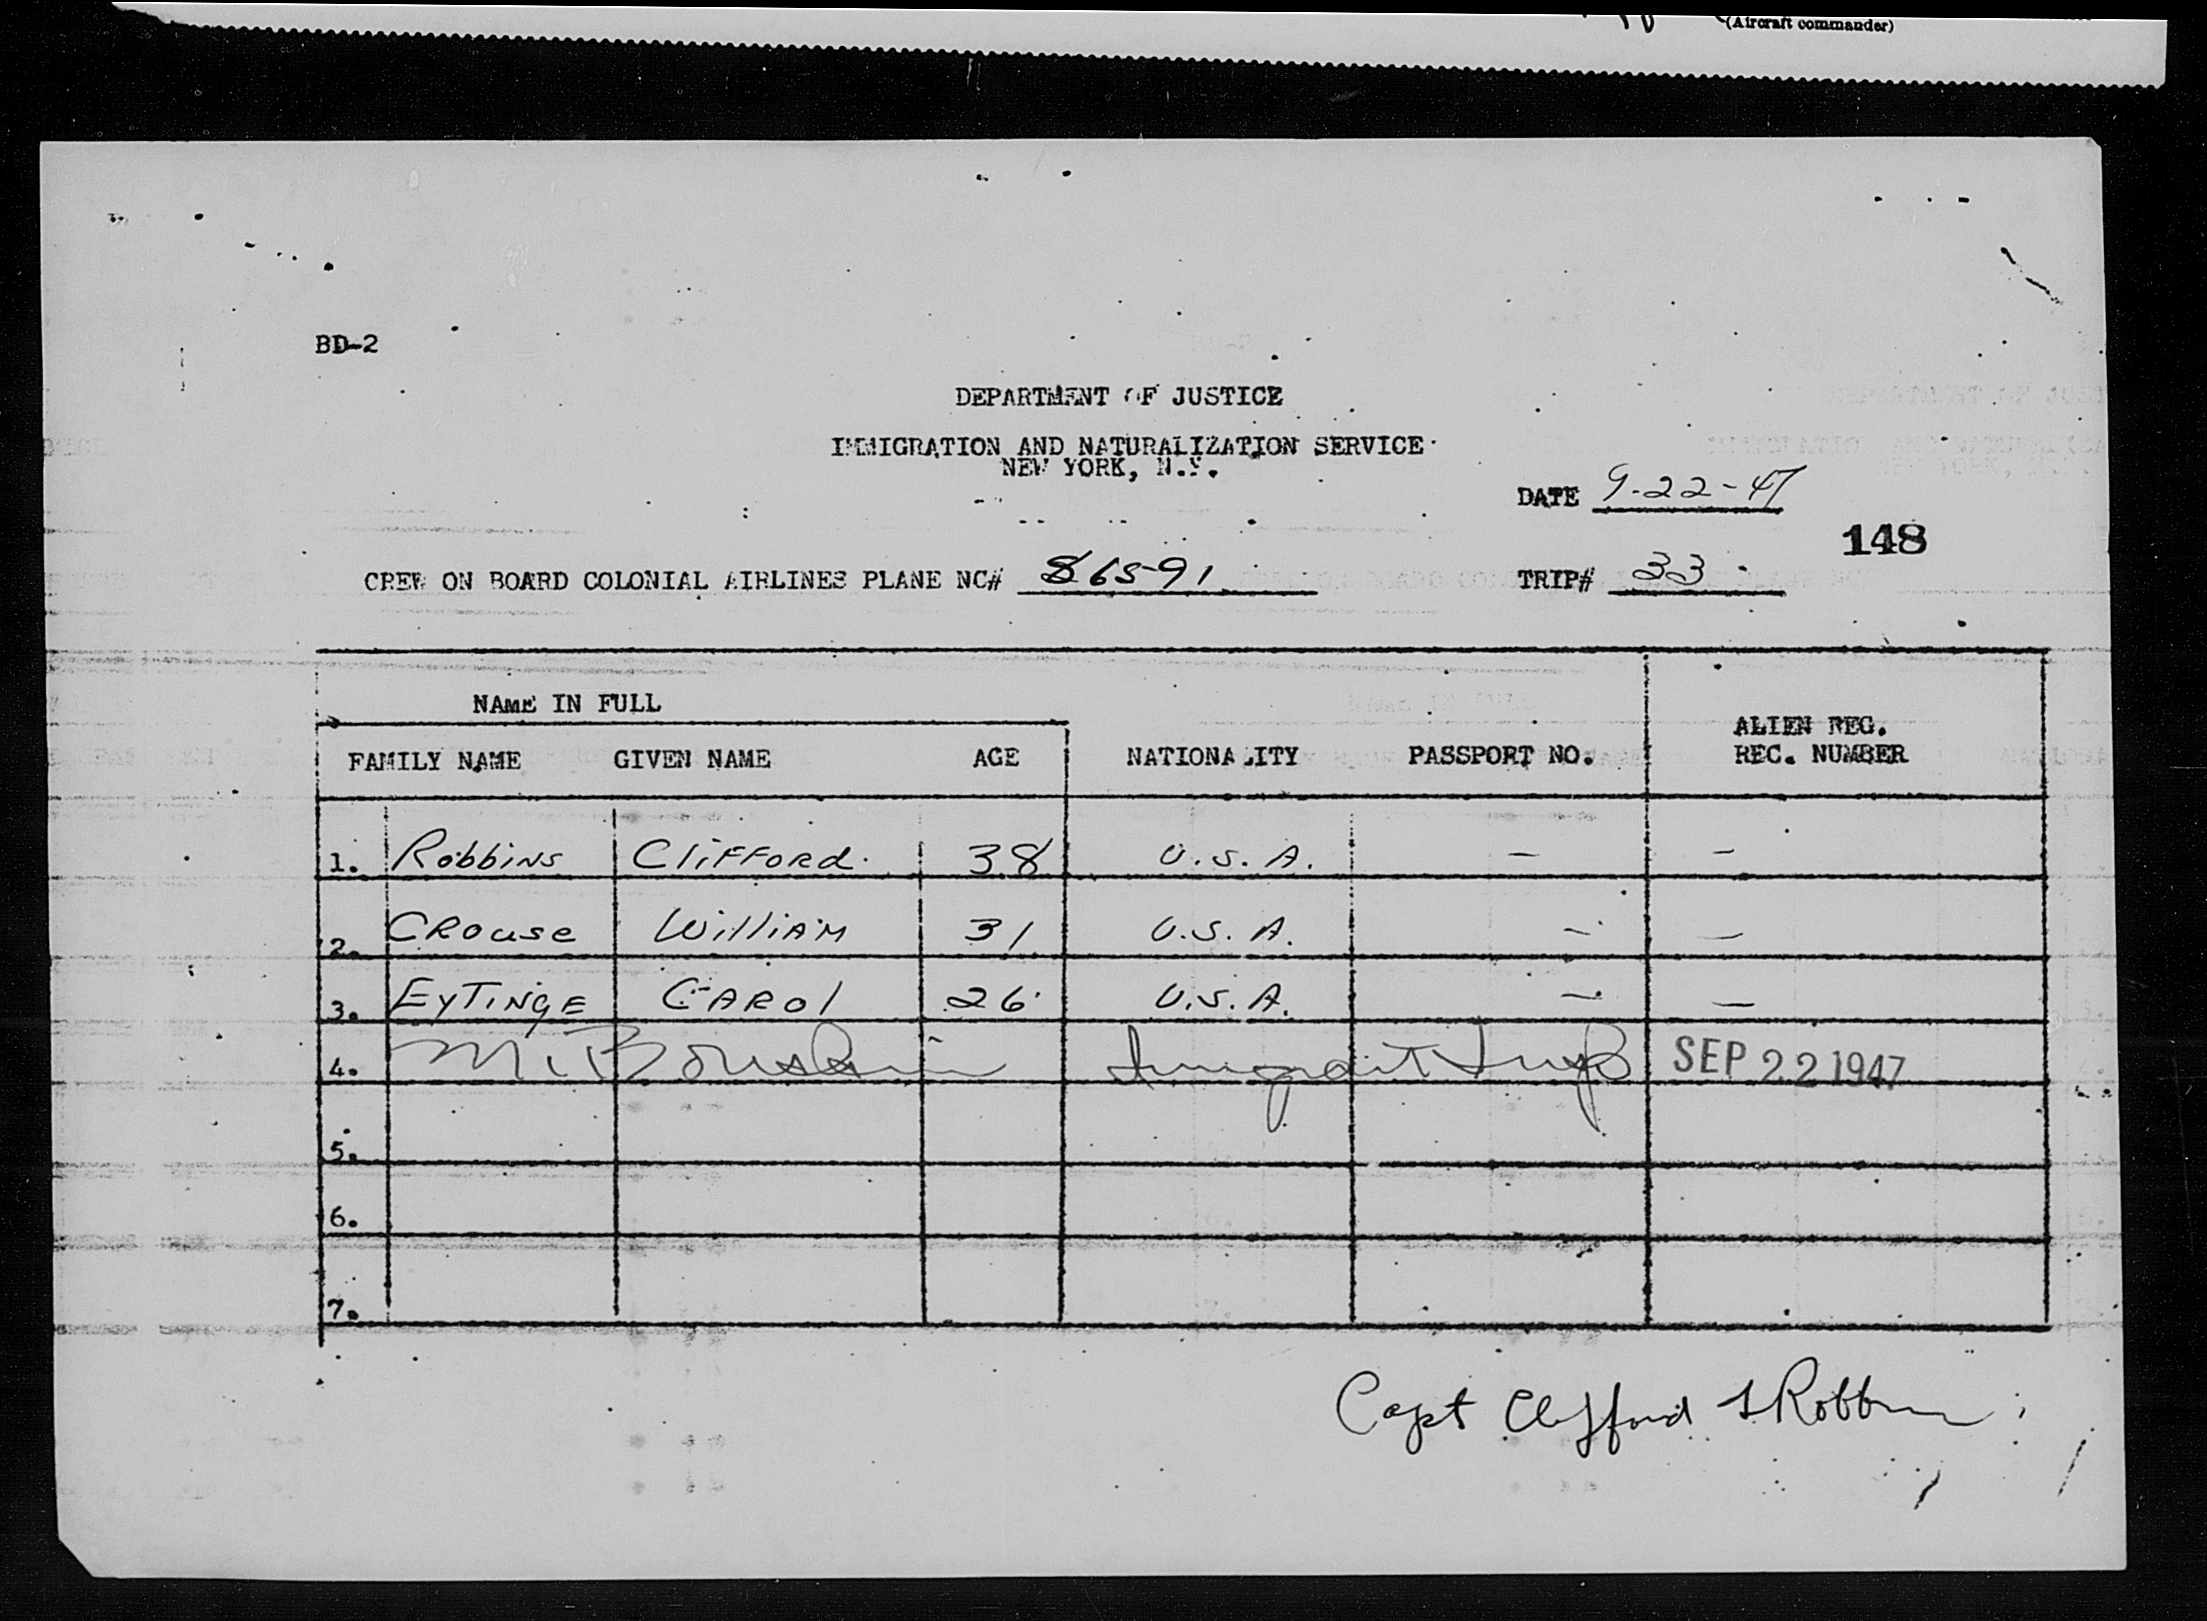 (Aircraft commander)
BD-2
DEPARTMENT OF JUSTICE
IMMIGRATION AND NATURALIZATION SERVICE
NEW YORK, N.Y.
DATE 9-22-47
148
CREW ON BOARD COLONIAL AIRLINES PLANE NC# 86591 TRIP# 33
NAME IN FULL
FAMILY NAME GIVEN NAME AGE NATIONALITY PASSPORT NO. ALIEN REG. REC. NUMBER
1. Robbins Clifford 38 U.S.A. - -
2. Crouse William 31 U.S.A. - -
3. Eytinge Carol 26 U.S.A. - -
4. SEP 22 1947
5.
6.
7.
Capt Clifford Robbins